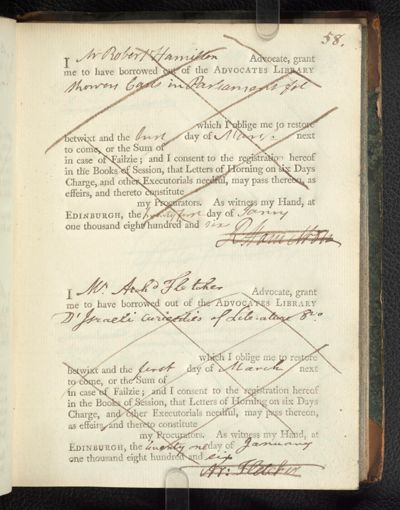 58.
I Mr Robert Hamilton Advocate, grant
me to have borrowed out of the ADVOCATES LIBRARY
Showers Cases in Parliament fol
which I oblige me to restore
betwixt and the first day of next
to come, or the Sum of
in case of Failzie; and I consent to the registration hereof
in the Books of Session, that Letters of Horning on six Days
Charge, and other Executorials needful, may pass thereon, as
effeirs, and thereto constitute
my Procurators. As witness my Hand, at
EDINBURGH, the twenty first day of Janry
one thousand eight hundred and six
R. Hamilton
I Mr Archd Fletcher Advocate, grant
me to have borrowed out of the ADVOCATES LIBRARY
D'Israeli curiosities of Literature 8vo.
which I oblige me to restore
betwixt and the first day of March next
to come, or the Sum of
in case of Failzie; and I consent to the registration hereof
in the Books of Session, that Letters of Horning on six Days
Charge, and other Executorials needful, may pass thereon,
as effeirs, and thereto constitute
my Procurators. As witness my Hand, at
EDINBURGH, the twenty one day of January
one thousand eight hundred and six
Ar: Fletcher